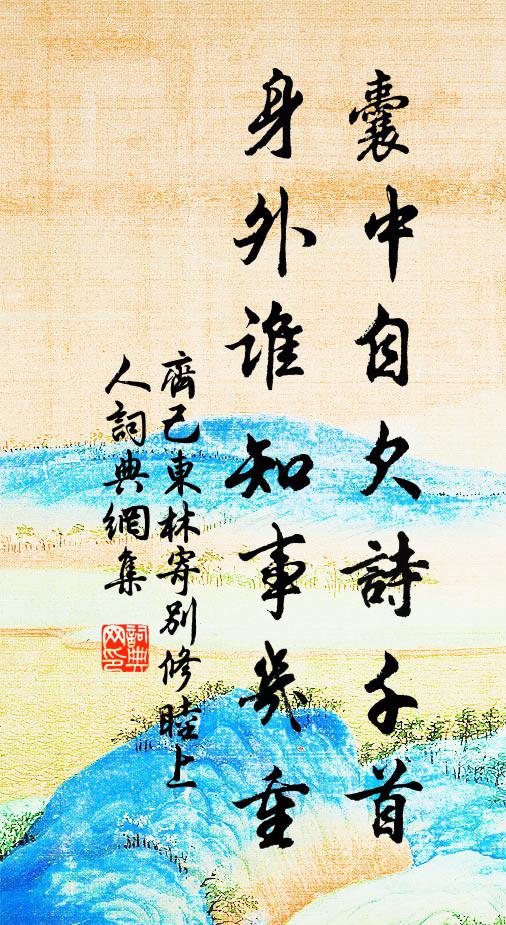 囊中自欠詩千首
身外誰知事幾重
齊己東林寄別修睦上
人詞典網集
詞典
网印